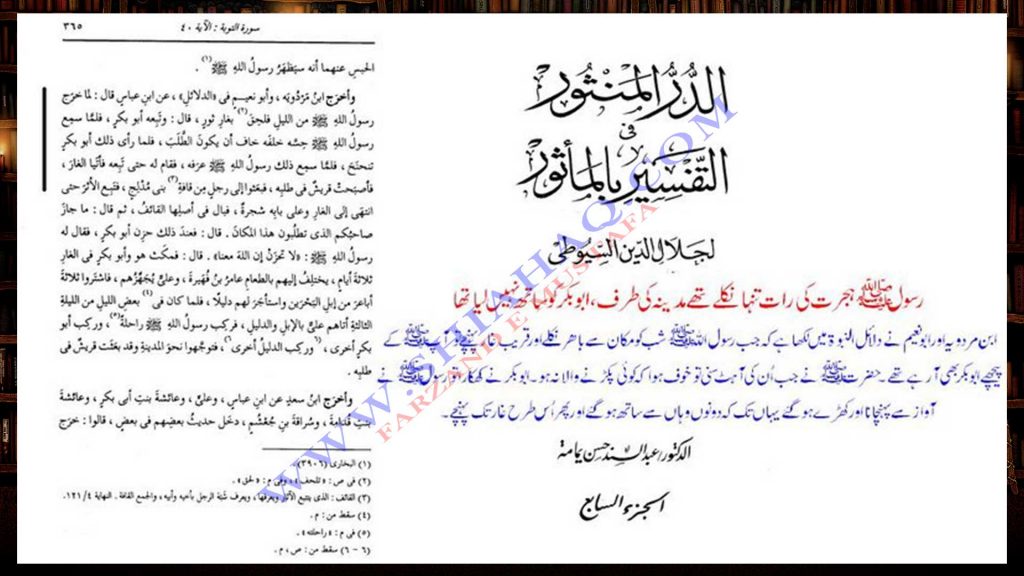 سورة التوبة : الآية ٤٠
٣٦٥
الحبس عنهما أنه سيَظهَرُ رسولُ اللهِ ﷺ(١) .
وأخرَج ابنُ مَرْدُويَه ، وأبو نعيمٍ فى «الدلائلِ» ، عن ابنِ عباسٍ قال : لما خرَج
رسولُ اللهِ ﷺ من الليلِ فلحِق(٢) بغارِ ثورٍ ، قال : وتبِعه أبو بكرٍ ، فلمَّا سمِع
رسولُ اللهِ ﷺ حِسَّه خلفَه خاف أن يكونَ الطَّلَبَ ، فلما رأى ذلك أبو بكرٍ
تنحنَح ، فلمَّا سمِع ذلك رسولُ اللهِ ﷺ عرَفه ، فقام له حتى تبِعه فأتَيا الغارَ ،
فأصبَحتْ قريشٌ فى طلبِه ، فبعَثوا إلى رجلٍ مِن قافةِ(٣) بنى مُدْلِجٍ ، فتتبع الأثرَ حتى
انتهَى إلى الغارِ وعلى بابِه شجرةٌ ، فبال فى أصلِها القائفُ ، ثم قال : ما جازَ
صاحبُكم الذى تطلُبون هذا المكانَ . قال : فعندَ ذلك حزِن أبو بكرٍ ، فقال له
رسولُ اللهِ ﷺ : «لا تحزَنْ إن اللهَ معنا» . قال : فمكَث هو وأبو بكرٍ فى الغارِ
ثلاثةَ أيامٍ ، يختلِفُ إليهم بالطعامِ عامرُ بنُ فُهَيرةَ ، وعلىٌّ يُجَهِّزُهم ، فاشتَروا ثلاثةَ
أباعرَ من إبلِ البَحْرَين واستأجَر لهم دليلًا ، فلما كان فى (٤) بعضِ الليلِ من الليلةِ
الثالثةِ أتاهم علىٌّ بالإبلِ والدليلِ ، فركِب رسولُ اللهِ ﷺ راحلتَه(٥) ، وركِب أبو
بكرٍ أخرى ، (٦)وركِب الدليلُ أخرى(٦) ، فتوجَّهوا نحوَ المدينةِ وقد بعَثت قريشٌ فى
طلبِه .
وأخرَج ابنُ سعدٍ عن ابنِ عباسٍ ، وعلىٍّ ، وعائشةَ بنتِ أبى بكرٍ ، وعائشةَ
بنتِ قُدامةَ ، وسُراقةَ بنِ جُعْشُمٍ ، دخَل حديثُ بعضِهم فى بعضٍ ، قالوا : خرَج
(١) البخارى (٣٩٠٦) .
(٢) فى ص : «تلحف» ، وفى م : «لحق» .
(٣) القائف : الذى يتتبع الآثار ويعرفها ، ويعرف شَبَه الرجل بأخيه وأبيه ، والجمع القافة . النهاية ٤/ ١٢١.
(٤) سقط من : م .
(٥) فى م : «راحلته» .
(٦ - ٦) سقط من : ص ، م .
الدُّرُّ المَنْثُور
فى
التَّفْسِيرِ بِالمَأْثُور
لجلال الدين السيوطى
رسول ﷺ ہجرت کی رات تنہا نکلے تھے مدینہ کی طرف، ابوبکر کو ساتھ نہیں لیا تھا
ابن مردویہ اور ابونعیم نے دلائل النبوۃ میں لکھا ہے کہ جب رسول اللہ ﷺ شب کو مکان سے باھر نکلے اور قریب پہنچے تو آپ ﷺ کے
پیچھے ابوبکر بھی آرہے تھے۔ حضرت ﷺ نے جب اُن کی آہٹ سنی تو خوف ہوا کہ کوئی پکڑنے والا نہ ہو۔ ابوبکر نے کھنکارا اور رسول ﷺ نے
آواز سے پہچانا اور کھڑے ہوگئے یہاں تک کہ دونوں وہاں سے ساتھ ہوگئے اور پھر اُس طرح غار تک پہنچے۔
الدكتور عبد السند حسن يمامة
الجزء السابع
WWW.SHIAHAQ.COM
FARZAND E MUSTAFA